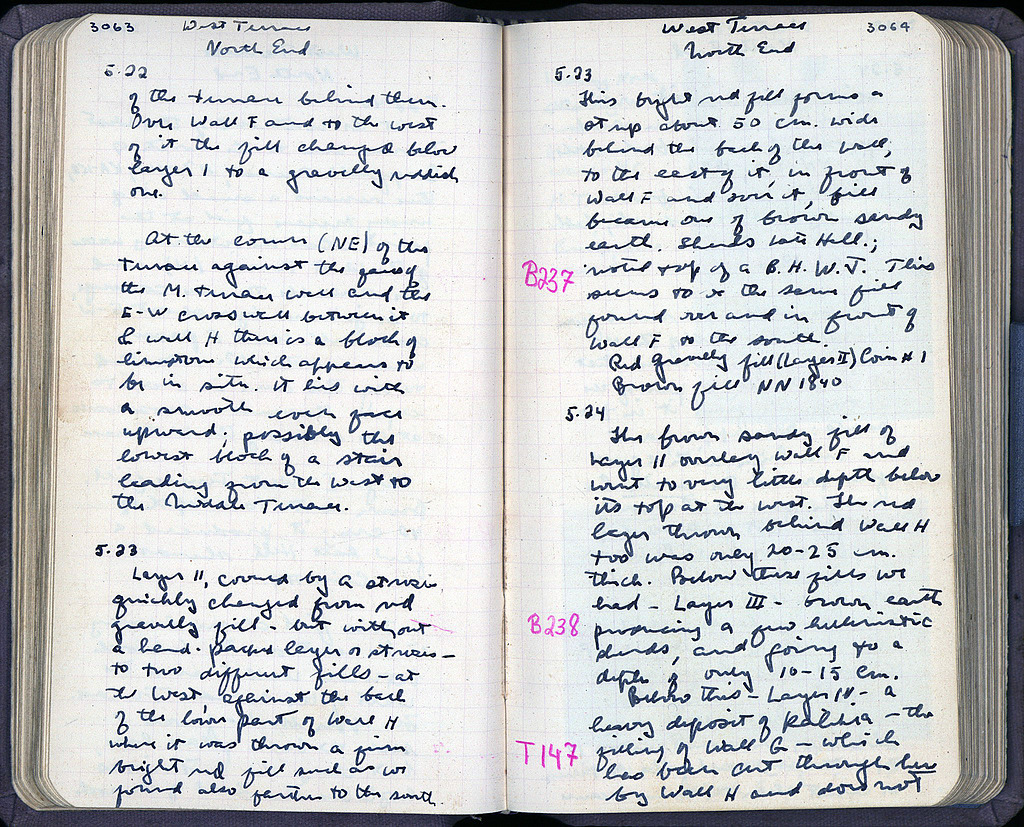 3063 West Terrace
North End
5.22
of the terrace behind them.
Over Wall F and to the west
of it the fill changed below
layer 1 to a gravelly reddish
one.
At the corner (NE) of the
Terrace against the of
the M. terrace wall and the
E-W crosswall between it
& wall H there is a block of
limestone which appears to
be in situ. It lies with
a smooth even face
upward; possibly the
lowest block of a stair
leading from the West to
the Middle Terrace.
5.23
Layer II, covered by a strosis,
quickly changed from red
gravelly fill - but without
a hard packed layer or strosis -
to two different fills - at
the West against the back
of the lower part of Wall H
where it was thrown a firm
bright red fill such as we
found also farther to the south.
West Terrace 3064
North End
5.23
This bright red fill forms a
strip about 50 cm. wide
behind the back of the wall;
to the east of it, in front of
Wall F and over it, fill
became one of brown sandy
earth. Sherds late Hell.;
B237 noted top of a B.H.W.J. This
seems to be the same fill
found over and in front of
Wall F to the south.
Red gravelly fill (Layer II) Coin # 1
Brown fill NN 1840
5.24
The brown sandy fill of
Layer II overlay Wall F and
went to very little depth below
its top at the west. The red
layer thrown behind Wall H
too was only 20-25 cm.
thick. Below these fills we
had - Layer III - brown earth
B238 producing a few hellenistic
sherds, and going to a
depth of only 10-15 cm.
Below this - Layer IV - a
heavy deposit of kalikia - the
T147 filling of Wall G - which
has been cut through here
by Wall H and does not